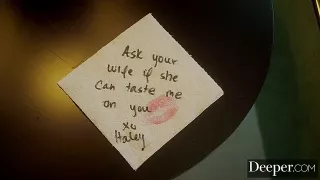 Ask your
wife if she
can taste me
on you
xo
Haley
DEEPER.COM